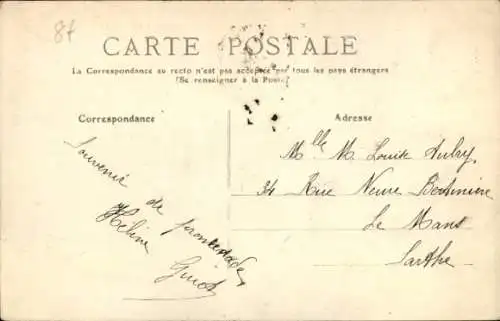 87
CARTE POSTALE
La Correspondance au recto n'est pas acceptée par tous les pays étrangers
(Se renseigner à la Poste)
Correspondance
Adresse
Souvenir
de promenade
Hélène
Guiot
Mlle M. Louise Aubry
34 Rue Neuve
Le Mans
Sarthe